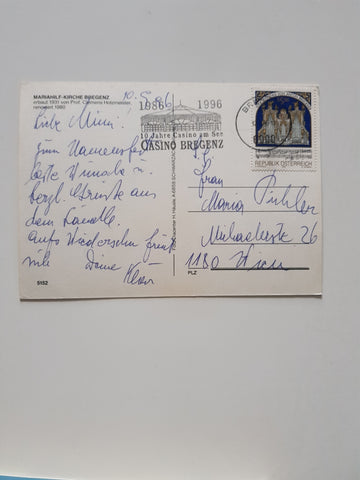 MARIAHILF-KIRCHE BREGENZ
erbaut 1931 von Prof. Clemens Holzmeister,
renoviert 1980
10.9.96
1986 1996
10 Jahre Casino am See
CASINO BREGENZ
REPUBLIK ÖSTERREICH
Liebe Mimi!
zum Namensfest
beste Wünsche u.
herzl. Grüsse aus
dem Ländle.
Aufs Wiedersehn freut
sich Deine
Frau
Maria Pichler
26
1180 Wien
PLZ
5152